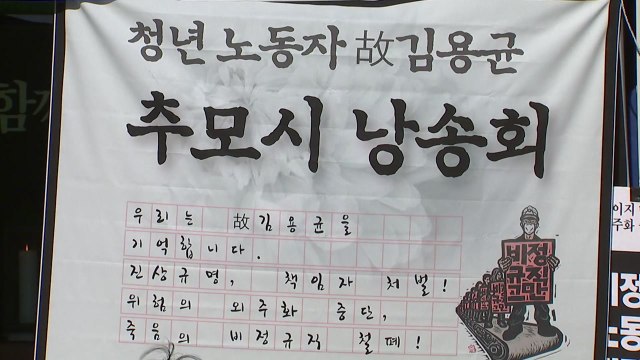 청년 노동자 故김용균
추모시 낭송회
우리는 故김용균을
기억합니다.
진상규명, 책임자 처벌!
위험의 외주화 중단,
죽음의 비정규직 철폐!
비정
규직
함께
이지
주화
정
노동